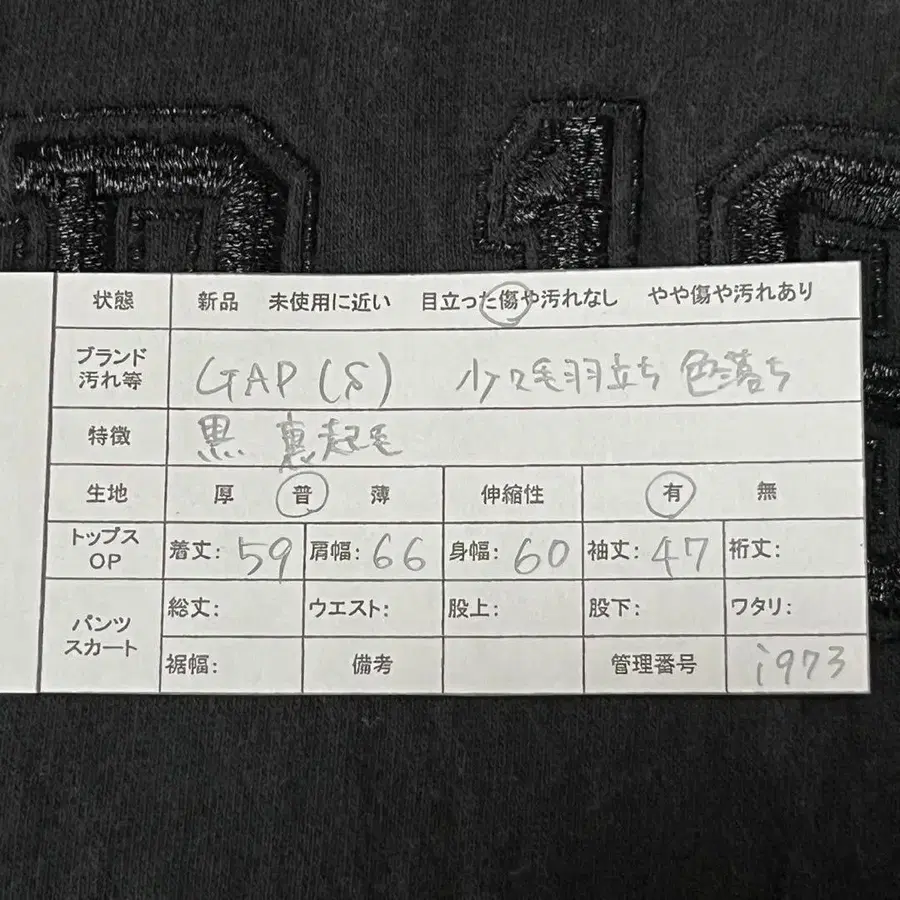 状態 新品 未使用に近い 目立った傷や汚れなし やや傷や汚れあり
ブランド
汚れ等 GAP (S) 少々毛羽立ち 色落ち
特徴 黒 裏起毛
生地 厚 普 薄 伸縮性 有 無
トップス
OP 着丈: 59 肩幅: 66 身幅: 60 袖丈: 47 裄丈:
パンツ
スカート 総丈: ウエスト: 股上: 股下: ワタリ:
裾幅: 備考 管理番号 i973